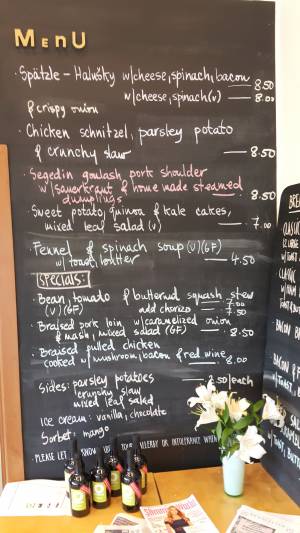 MENU
· Spätzle - Halušky w/cheese, spinach, bacon — 8.50
w/cheese, spinach (v) — 8.00
& crispy onion
· Chicken schnitzel, parsley potato
& crunchy slaw — 8.50
· Segedin goulash, pork shoulder
w/ sauerkraut & home made steamed
dumplings 8.50
Sweet potato, quinoa & kale cakes,
mixed leaf salad (v) — 7.00
Fennel & spinach soup (v) (GF)
w/ toast, butter — 4.50
SPECIALS:
· Bean, tomato & butternut squash stew
(v) (GF) — 7.00
add chorizo — 7.50
· Braised pork loin w/caramelized onion
& mash, mixed salad (GF) — 8.50
· Braised pulled chicken
cooked w/mushroom, bacon & red wine — 8.00
Sides: parsley potatoes — 2.50 each
crunchy slaw
mixed leaf salad
Ice cream: vanilla, chocolate
Sorbet mango
PLEASE LET KNOW YOU ALLERGY OR INTOLERANCE WHEN